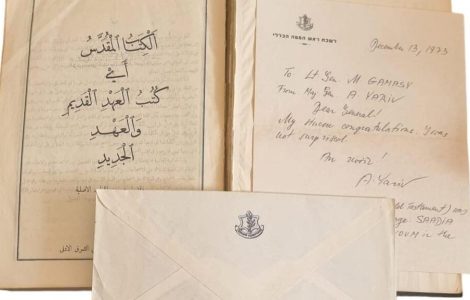 الكِتَابُ المُقَدَّسُ
أَيْ
كُتُبُ العَهْدِ القَدِيمِ
وَالعَهْدِ
الجَدِيدِ
الاصلية
الشرق الادنى
לשכת ראש המטה הכללי
December 13, 1973
To Lt Gen. M GAMASY
From Maj Gen A YARIV
Dear General!
My sincere congratulations. I was
not surprised.
A. Yariv
Testament) was
SAADIA
in the